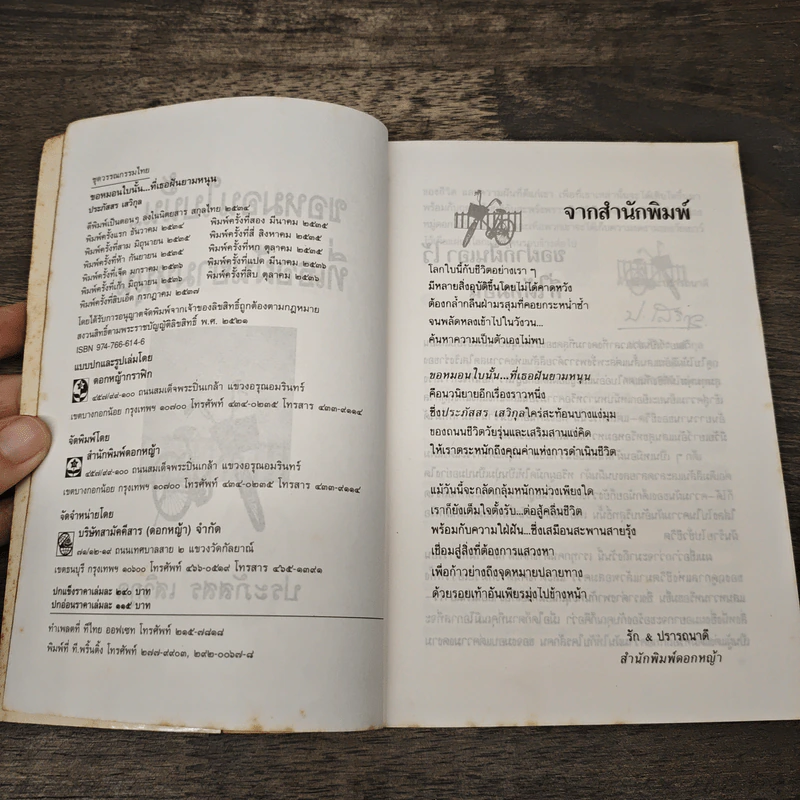 ชุดวรรณกรรมไทย
ขอหมอนใบนั้น...ที่เธอฝันยามหนุน
ประภัสสร เสวิกุล
ตีพิมพ์เป็นตอนๆ ลงในนิตยสาร สกุลไทย ๒๕๓๔
พิมพ์ครั้งแรก ธันวาคม ๒๕๓๔
พิมพ์ครั้งที่สอง มีนาคม ๒๕๓๕
พิมพ์ครั้งที่สาม มิถุนายน ๒๕๓๕
พิมพ์ครั้งที่สี่ สิงหาคม ๒๕๓๕
พิมพ์ครั้งที่ห้า กันยายน ๒๕๓๕
พิมพ์ครั้งที่หก ตุลาคม ๒๕๓๕
พิมพ์ครั้งที่เจ็ด มกราคม ๒๕๓๖
พิมพ์ครั้งที่แปด มีนาคม ๒๕๓๖
พิมพ์ครั้งที่เก้า มิถุนายน ๒๕๓๖
พิมพ์ครั้งที่สิบ ตุลาคม ๒๕๓๖
พิมพ์ครั้งที่สิบเอ็ด กรกฎาคม ๒๕๓๗
โดยได้รับการอนุญาตจัดพิมพ์จากเจ้าของลิขสิทธิ์ถูกต้องตามกฎหมาย
สงวนสิทธิ์ตามพระราชบัญญัติลิขสิทธิ์ พ.ศ. ๒๕๒๑
ISBN 974-766-614-6
แบบปกและรูปเล่มโดย
ดอกหญ้ากราฟิก
๔๕๗/๙๙-๑๐๐ ถนนสมเด็จพระปิ่นเกล้า แขวงอรุณอมรินทร์
เขตบางกอกน้อย กรุงเทพฯ ๑๐๗๐๐ โทรศัพท์ ๔๓๔-๐๒๓๕ โทรสาร ๔๓๓-๙๑๑๔
จัดพิมพ์โดย
สำนักพิมพ์ดอกหญ้า
๔๕๗/๙๙-๑๐๐ ถนนสมเด็จพระปิ่นเกล้า แขวงอรุณอมรินทร์
เขตบางกอกน้อย กรุงเทพฯ ๑๐๗๐๐ โทรศัพท์ ๔๓๔-๐๒๓๕ โทรสาร ๔๓๓-๙๑๑๔
จัดจำหน่ายโดย
บริษัทสามัคคีสาร (ดอกหญ้า) จำกัด
๗๑/๑๒-๑๙ ถนนเทศบาลสาย ๒ แขวงวัดกัลยาณ์
เขตธนบุรี กรุงเทพฯ ๑๐๖๐๐ โทรศัพท์ ๔๖๖-๐๕๑๙ โทรสาร ๔๖๕-๑๓๙๑
ปกแข็งราคาเล่มละ ๒๔๐ บาท
ปกอ่อนราคาเล่มละ ๑๑๕ บาท
ทำเพลตที่ ทีไทย ออฟเซท โทรศัพท์ ๒๑๕-๗๘๑๘
พิมพ์ที่ ที.พริ้นติ้ง โทรศัพท์ ๒๗๗-๙๙๐๓, ๒๙๒-๐๐๖๗-๘
จากสำนักพิมพ์
โลกใบนี้กับชีวิตอย่างเรา ๆ
มีหลายสิ่งอุบัติขึ้นโดยไม่ได้คาดหวัง
ต้องกล้ำกลืนฝ่ามรสุมที่คอยกระหน่ำซ้ำ
จนพลัดหลงเข้าไปในวังวน...
ค้นหาความเป็นตัวเองไม่พบ
ขอหมอนใบนั้น...ที่เธอฝันยามหนุน
คือนวนิยายอีกเรื่องราวหนึ่ง
ซึ่งประภัสสร เสวิกุลใคร่สะท้อนบางแง่มุม
ของถนนชีวิตวัยรุ่นและเสริมสานแง่คิด
ให้เราตระหนักถึงคุณค่าแห่งการดำเนินชีวิต
แม้วันนี้จะกลัดกลุ้มหนักหน่วงเพียงใด
เราก็ยังเต็มใจตั้งรับ...ต่อสู้คลื่นชีวิต
พร้อมกับความใฝ่ฝัน...ซึ่งเสมือนสะพานสายรุ้ง
เชื่อมสู่สิ่งที่ต้องการแสวงหา
เพื่อก้าวย่างถึงจุดหมายปลายทาง
ด้วยรอยเท้าอันเพียรมุ่งไปข้างหน้า
รัก & ปรารถนาดี
สำนักพิมพ์ดอกหญ้า